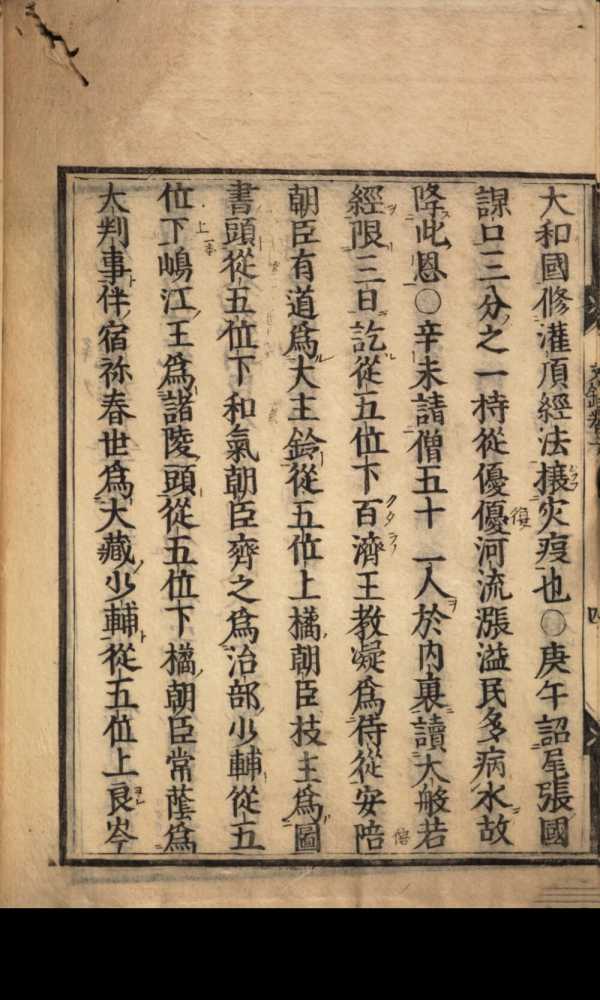 大和國修灌頂經法攘灾疫也○庚午詔尾張國
課口三分之一特從優優河流漲溢民多病水故
降此恩○辛未請僧五十一人於内裏讀大般若
經限三日訖從五位下百濟王教凝爲侍從安陪
朝臣有道爲大主鈴從五位上橘朝臣枝主爲圖
書頭從五位下和氣朝臣齊之爲治部少輔從五
位下嶋江王爲諸陵頭從五位下橘朝臣常蔭爲
大判事伴宿祢春世爲大藏少輔從五位上良岑